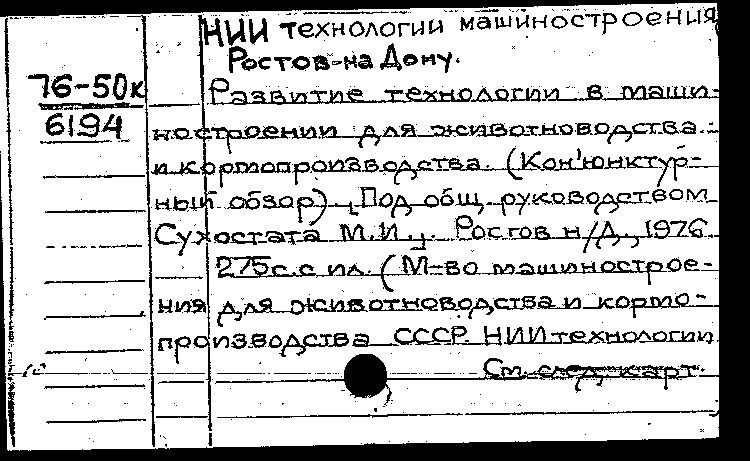 НИИ технологии машиностроения
Ростов-на Дону.
76-50к
6194
Развитие технологии в маши-
ностроении для животноводства
и кормопроизводства. (Кон'юнктур-
ный обзор). Под общ. руководством
Сухостата М.И., Ростов н/Д., 1976
275с.с ил. (М-во машинострое-
ния для животноводства и кормо-
производства СССР. НИИ технологии
См. след. карт.